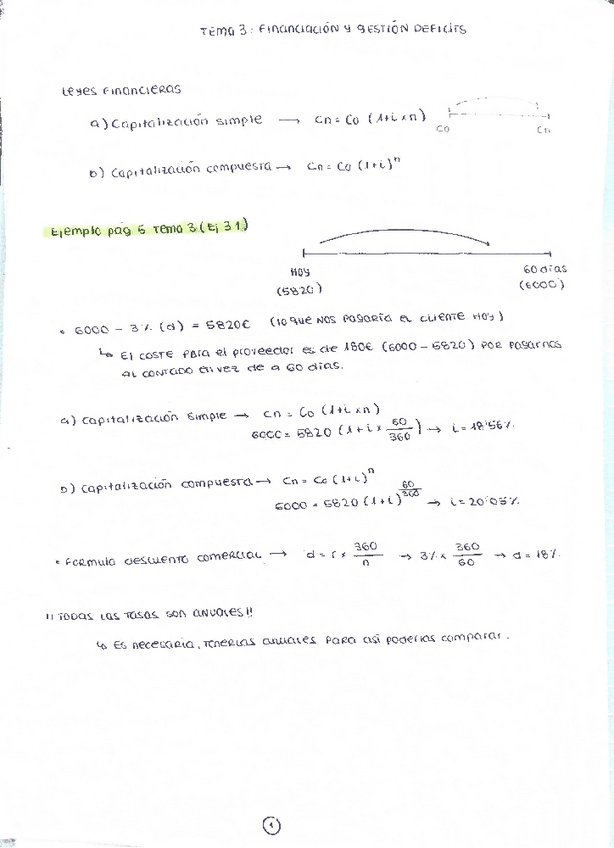 TEMA 3: FINANCIACIÓN Y GESTIÓN DEFICITS
Leyes Financieras
a) Capitalización simple → Cn = Co (1+i×n)
Co Cn
b) Capitalización compuesta → Cn = Co (1+i)^n
Ejemplo pág 6 Tema 3 (Ej 3.1)
HOY 60 días
(5820) (6000)
• 6000 – 3% (d) = 5820€ (lo que nos pagaría el cliente HOY)
↳ El coste para el proveedor es de 180€ (6000 – 5820) por pagarnos
al contado en vez de a 60 días.
a) Capitalización simple → Cn = Co (1+i×n)
6000 = 5820 (1+i× 60/360) → i = 18'56%
b) Capitalización compuesta → Cn = Co (1+i)^n
6000 = 5820 (1+i)^60/360 → i = 20'05%
• Formula descuento comercial → d = r × 360/n → 3% × 360/60 → d = 18%
!! TODAS LAS TASAS SON ANUALES!!
↳ Es necesaria, tenerlas anuales para así poderlas comparar.
1